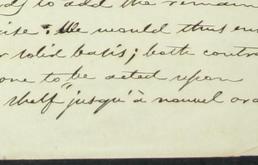 to add the remain
. We would thus en
solid basis; both contr
one to be acted upon
shelf "jusqu' à nouvel or